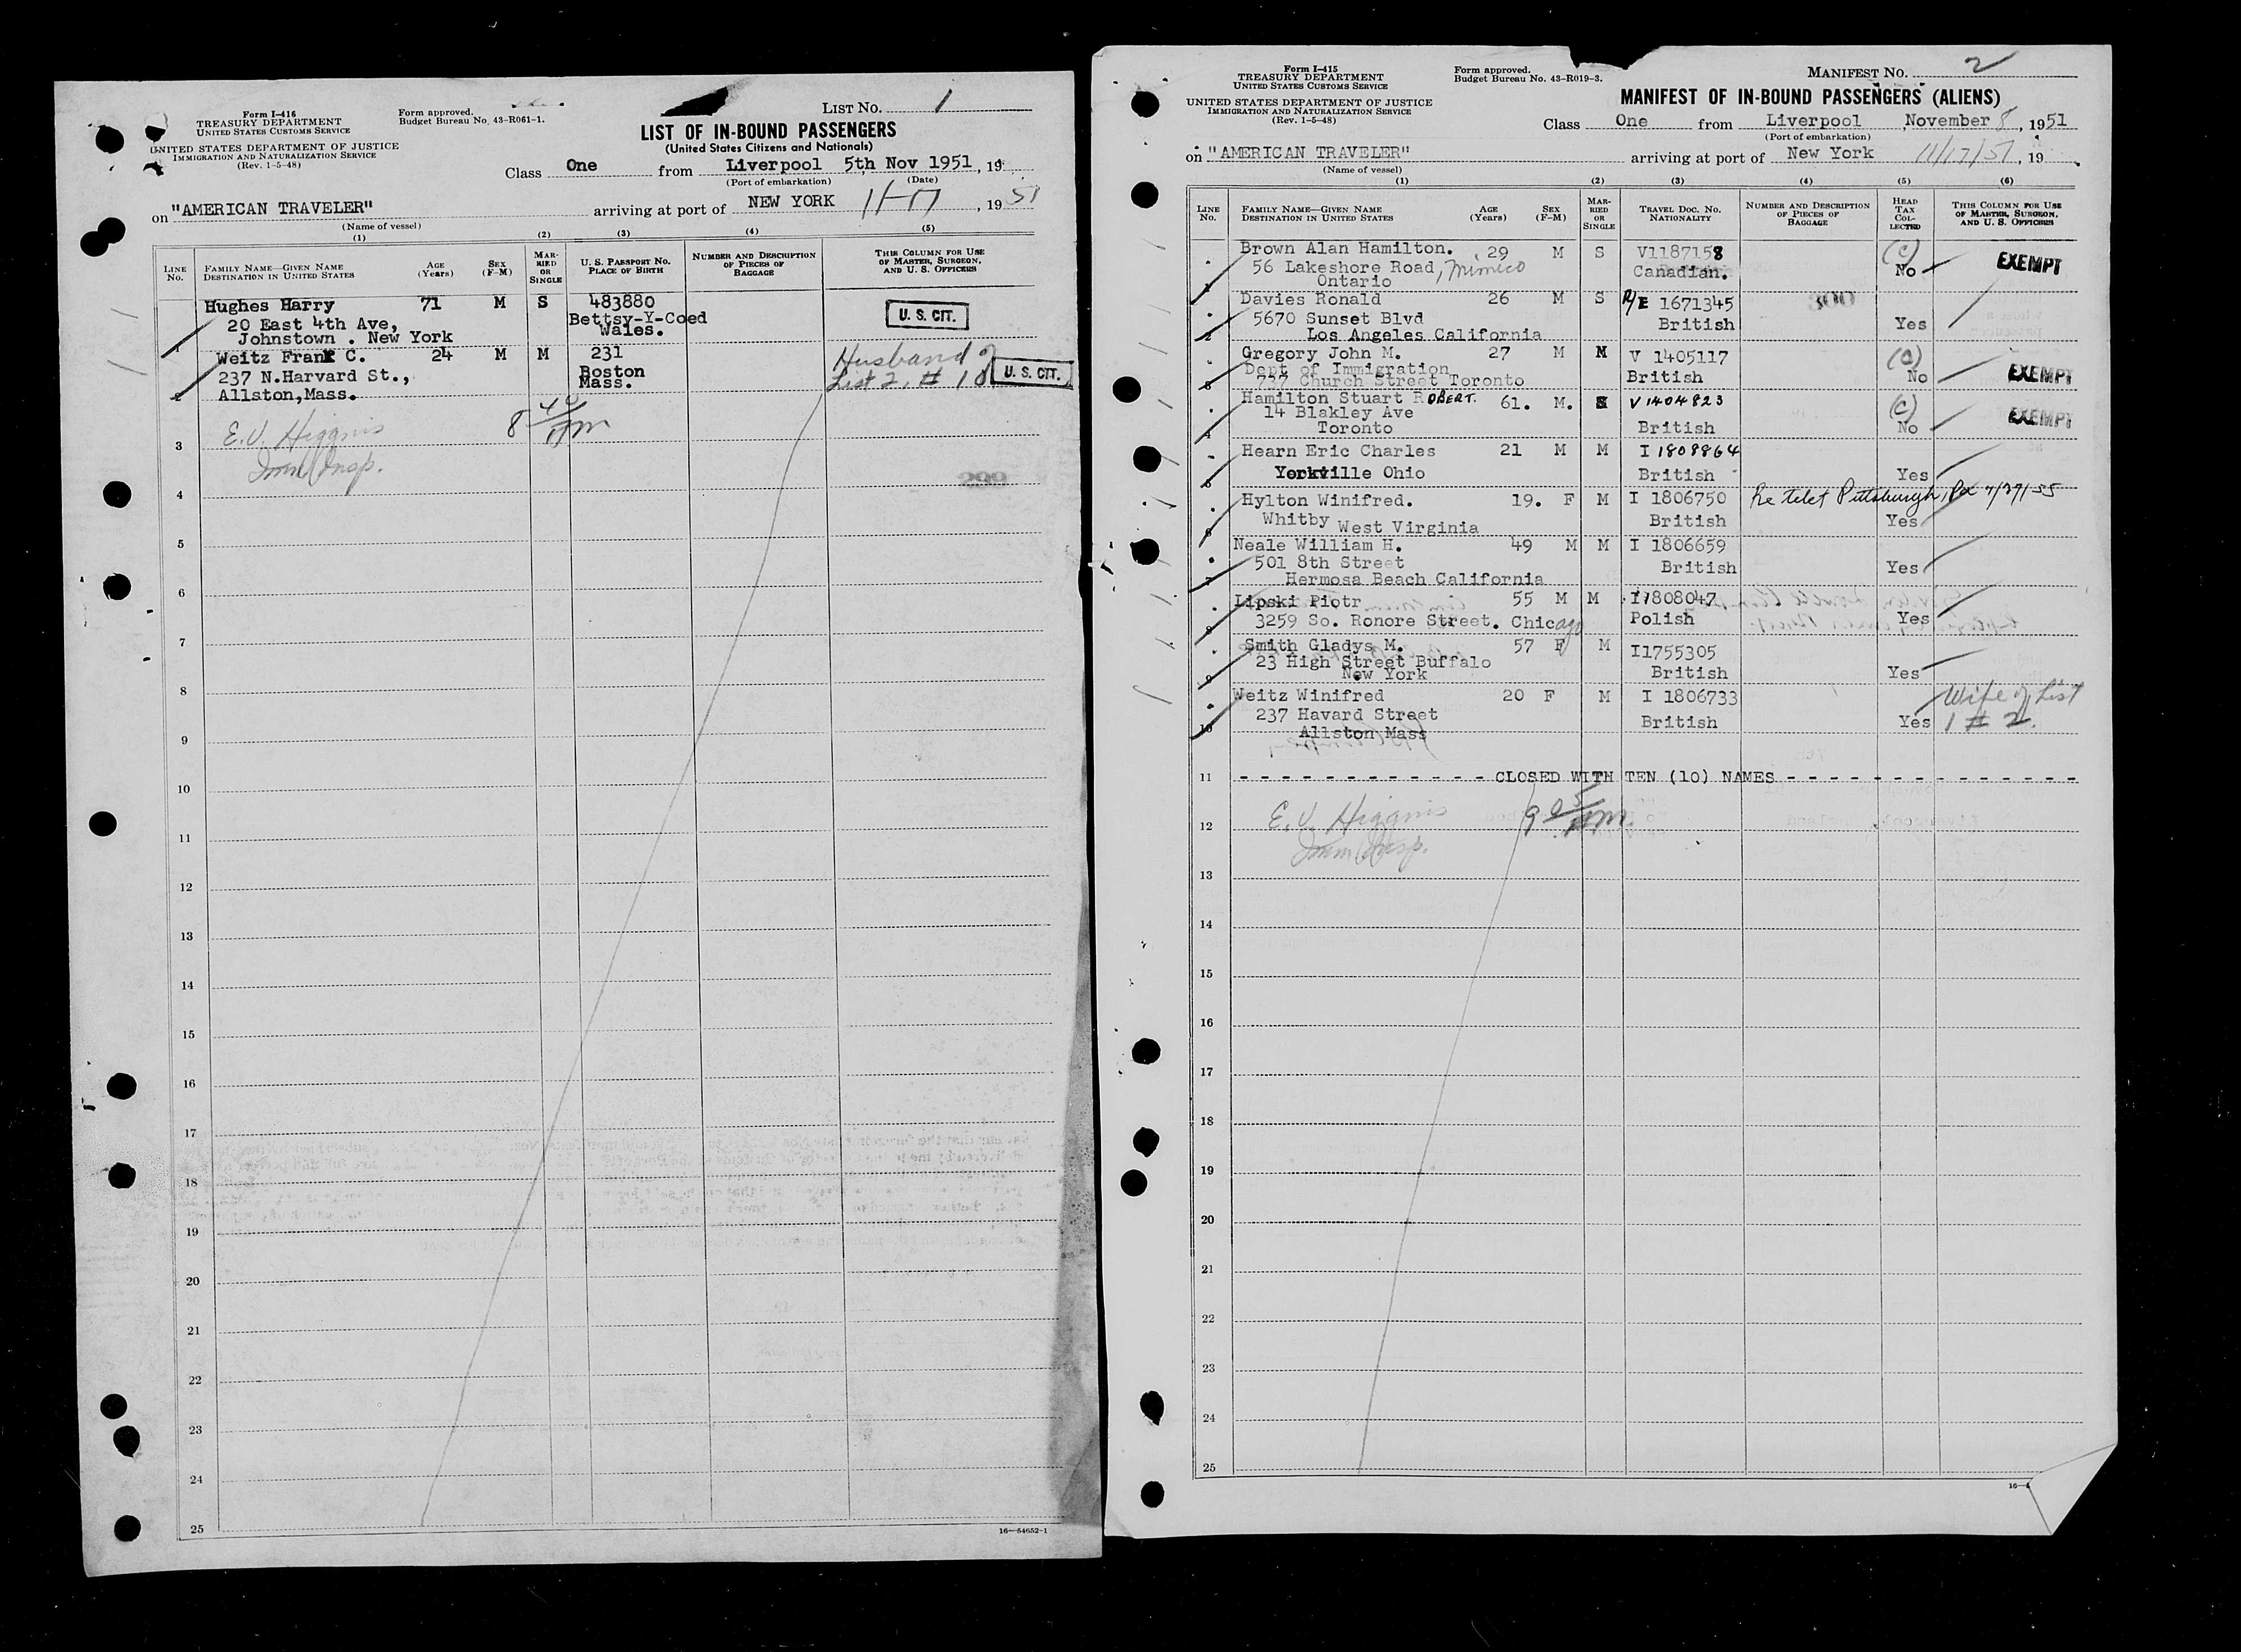 Form I-416
TREASURY DEPARTMENT
UNITED STATES CUSTOMS SERVICE
UNITED STATES DEPARTMENT OF JUSTICE
IMMIGRATION AND NATURALIZATION SERVICE
(Rev. 1-5-48)
Form approved.
Budget Bureau No. 43-R061-1.
LIST No. 1
LIST OF IN-BOUND PASSENGERS
(United States Citizens and Nationals)
Class One from Liverpool 5th Nov 1951, 19
(Port of embarkation) (Date)
on "AMERICAN TRAVELER" arriving at port of NEW YORK 11-17, 1951
(Name of vessel)
(1) (2) (3) (4) (5)
LINE No.
FAMILY NAME—GIVEN NAME
DESTINATION IN UNITED STATES
AGE (Years)
SEX (F-M)
MARRIED OR SINGLE
U. S. PASSPORT NO.
PLACE OF BIRTH
NUMBER AND DESCRIPTION OF PIECES OF BAGGAGE
THIS COLUMN FOR USE OF MASTER, SURGEON, AND U. S. OFFICERS
1 Hughes Harry 71 M S 483880 U. S. CIT.
20 East 4th Ave, Bettsy-Y-Coed
Johnstown . New York Wales.
2 Weitz Frank C. 24 M M 231 Husband of
237 N.Harvard St., Boston List 2, # 10 U. S. CIT.
Allston,Mass. Mass.
3 E. V. Higgins
Imm Insp.
299
4
5
6
7
8
9
10
11
12
13
14
15
16
17
18
19
20
21
22
23
24
25
16—54652-1
Form I-415
TREASURY DEPARTMENT
UNITED STATES CUSTOMS SERVICE
UNITED STATES DEPARTMENT OF JUSTICE
IMMIGRATION AND NATURALIZATION SERVICE
(Rev. 1-5-48)
Form approved.
Budget Bureau No. 43-R019-3.
MANIFEST No. 2
MANIFEST OF IN-BOUND PASSENGERS (ALIENS)
Class One from Liverpool, November 8, 1951
(Port of embarkation)
on "AMERICAN TRAVELER" arriving at port of New York 11/17/51, 19
(Name of vessel)
(1) (2) (3) (4) (5) (6)
LINE No.
FAMILY NAME—GIVEN NAME
DESTINATION IN UNITED STATES
AGE (Years)
SEX (F-M)
MARRIED OR SINGLE
TRAVEL DOC. NO.
NATIONALITY
NUMBER AND DESCRIPTION OF PIECES OF BAGGAGE
HEAD TAX COLLECTED
THIS COLUMN FOR USE OF MASTER, SURGEON, AND U. S. OFFICERS
1 Brown Alan Hamilton. 29 M S V1187158 (C) EXEMPT
56 Lakeshore Road, Mimico Canadian. No
Ontario
2 Davies Ronald 26 M S R/E 1671345 300
5670 Sunset Blvd British Yes
Los Angeles California
3 Gregory John M. 27 M M V 1405117 (C)
Dept of Immigration British No EXEMPT
737 Church Street Toronto
4 Hamilton Stuart ROBERT. 61. M. S V 1404823 (C) EXEMPT
14 Blakley Ave British No
Toronto
5 Hearn Eric Charles 21 M M I 1808864
Yorkville Ohio British Yes
6 Hylton Winifred. 19. F M I 1806750 Pittsburgh, Pa
Whitby West Virginia British Yes
7 Neale William H. 49 M M I 1806659
501 8th Street British Yes
Hermosa Beach California
8 Lipski Piotr 55 M M I1808047
3259 So. Ronore Street. Chicago Polish Yes
9 Smith Gladys M. 57 F M I1755305
23 High Street Buffalo British Yes
New York
10 Weitz Winifred 20 F M I 1806733 Wife of List
237 Havard Street British Yes 1 # 2.
Allston Mass
11 - - - CLOSED WITH TEN (10) NAMES - - -
12 E. V. Higgins
Imm Insp.
13
14
15
16
17
18
19
20
21
22
23
24
25